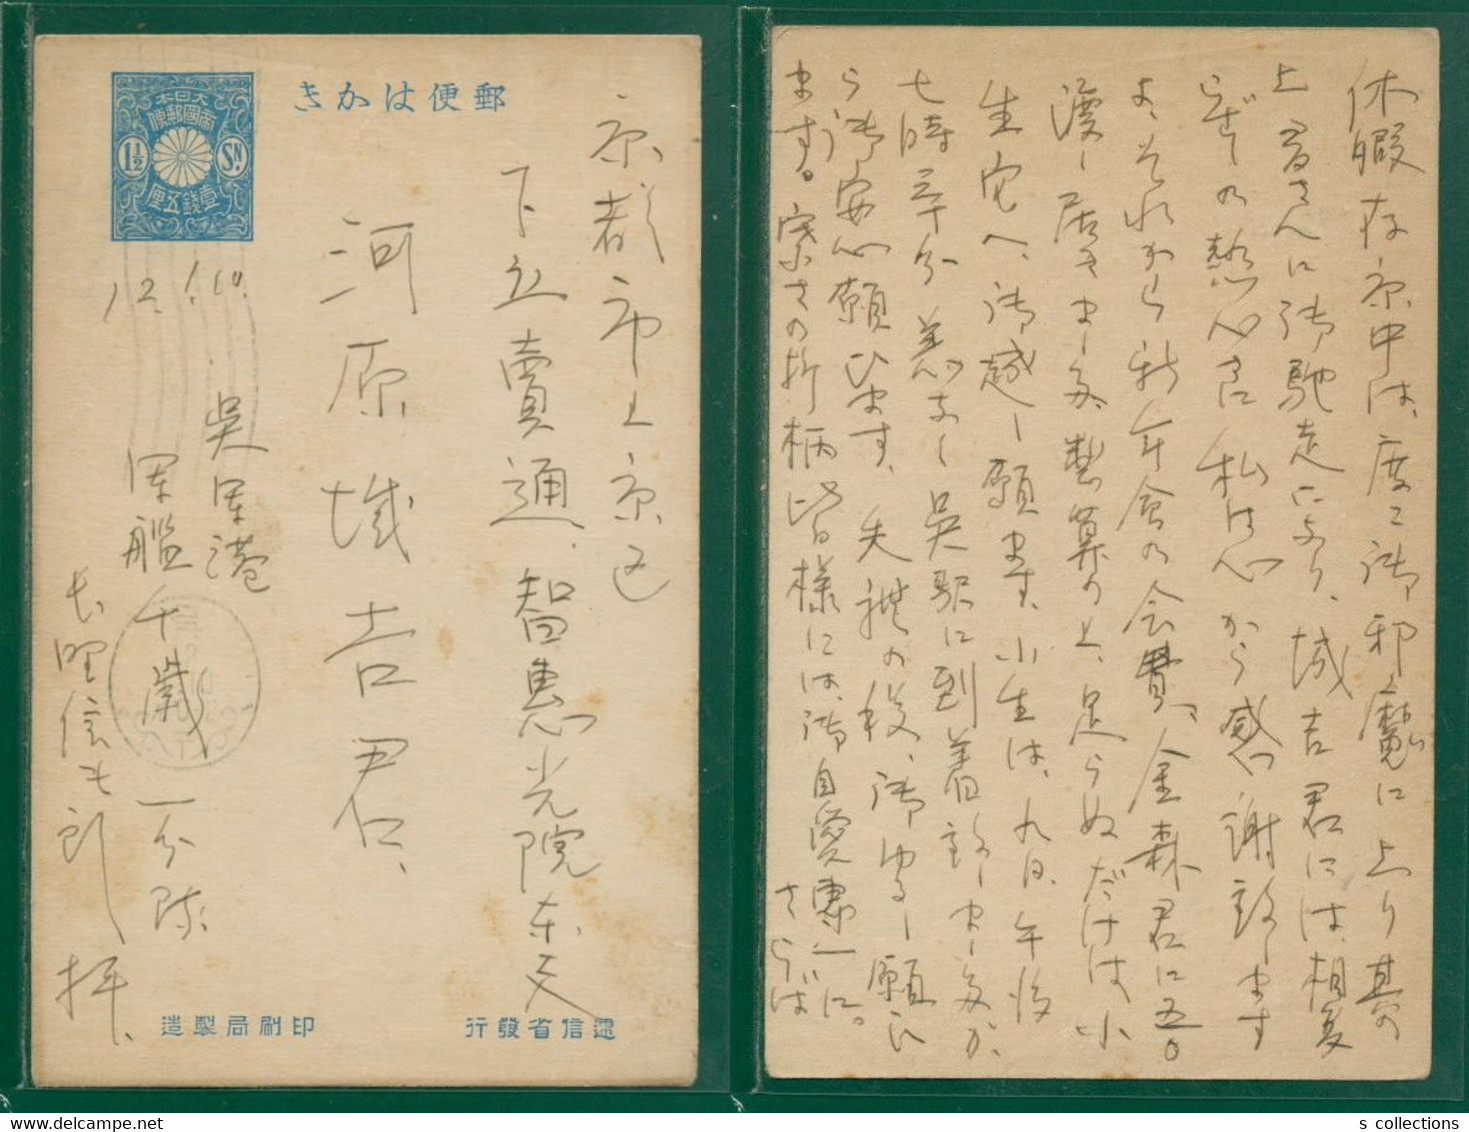 郵便はかき
大日本
帝國郵便
1½ Sn
壹錢五厘
京都市上京区
下立賣通 智惠光院東入
河原城吉君、
12.1.10.
呉軍港
軍艦千歳 一分隊
長野信
郎 拝、
逓信省發行
印刷局製造
休暇存京中は、度々御邪魔に上り其の
上 君さんに御馳走になり、城吉君には、相変
らずの熱心に 私は心から感謝致します
よ、それから新年会の会費、金森君に五〇
渡して居きました、勘算の上、足らぬだけは小
生宅へ、御越し願ます、小生は、九日、午後
七時半分 恙なく 呉駅に到着致しましたか
ら御安心願ひます、失礼の段、御ゆるし願ひ
ます。寒さの折柄皆様には、御自愛専一に。
さらば
s collections